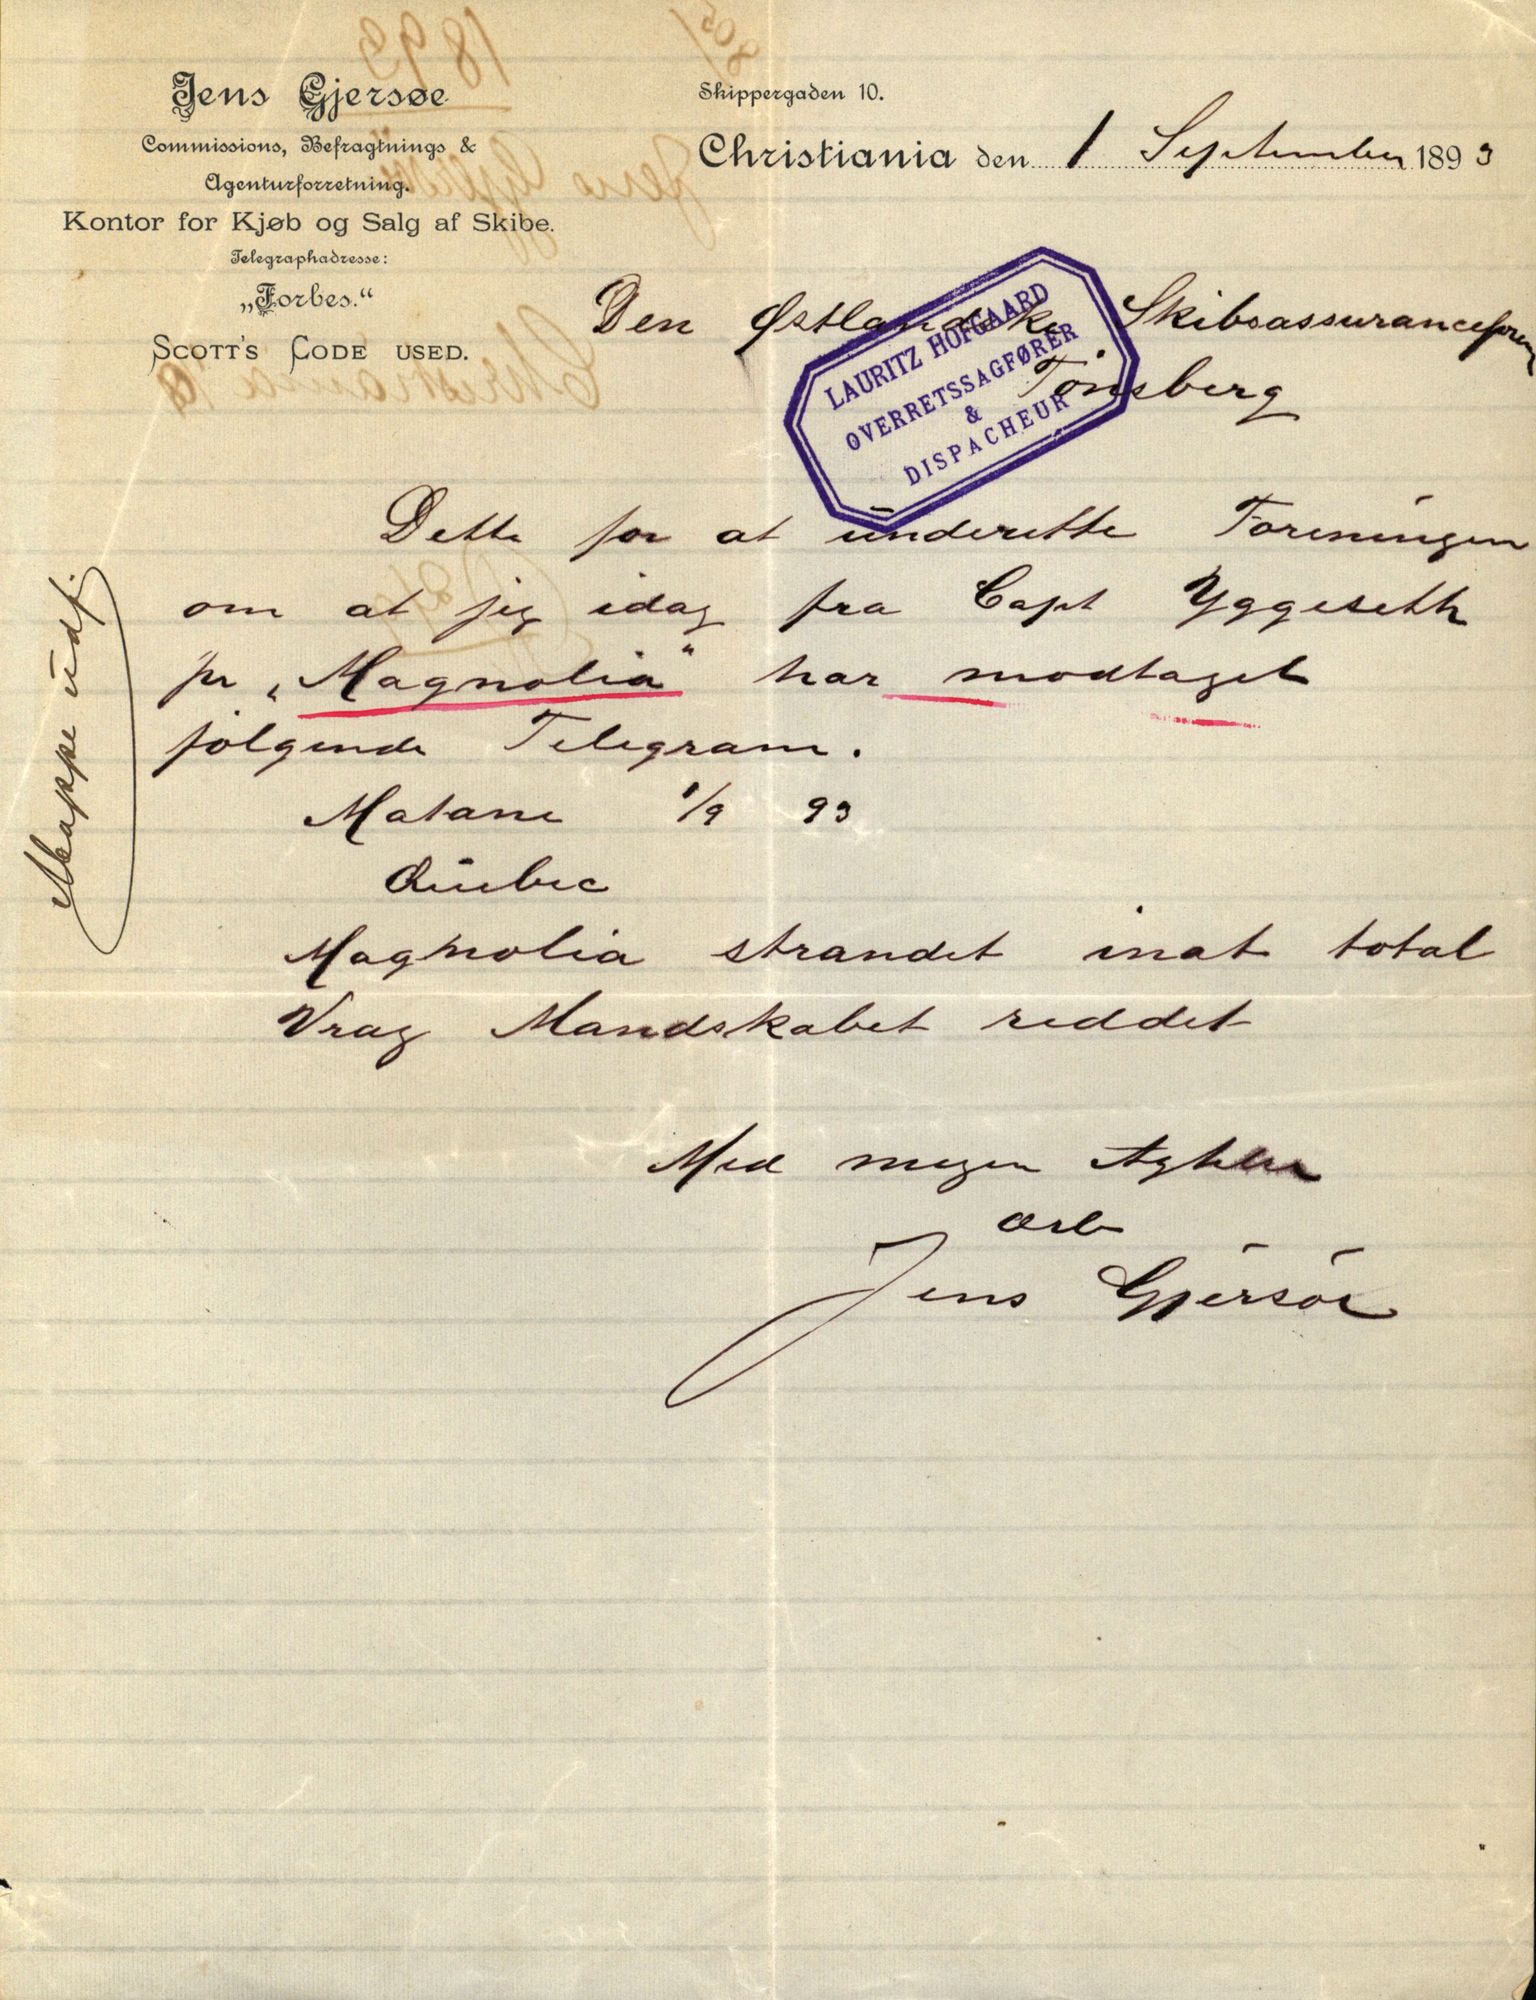 Jens Gjersøe
Commissions, Befragtnings &
Agenturforretning.
Kontor for Kjøb og Salg af Skibe.
Telegraphadresse:
„Forbes.“
SCOTT'S CODE USED.
Skippergaden 10.
Christiania den 1 September 1893
Den Østlandske Skibsassuranceforen
Tönsberg
LAURITZ HOFGAARD
OVERRETSSAGFØRER
&
DISPACHEUR
Mappe udf.
Dette for at underette Foreningen
om at jeg idag fra Capt Yggeseth
pr „Magnolia" har modtaget
følgende Telegram.
Matane 1/9 93
Quebec
Magnolia strandet inat total
Vrag Mandskabet reddet
Med megen Agtelse
Jens Gjersöe
1893
Jens Gjersøe
Christiania